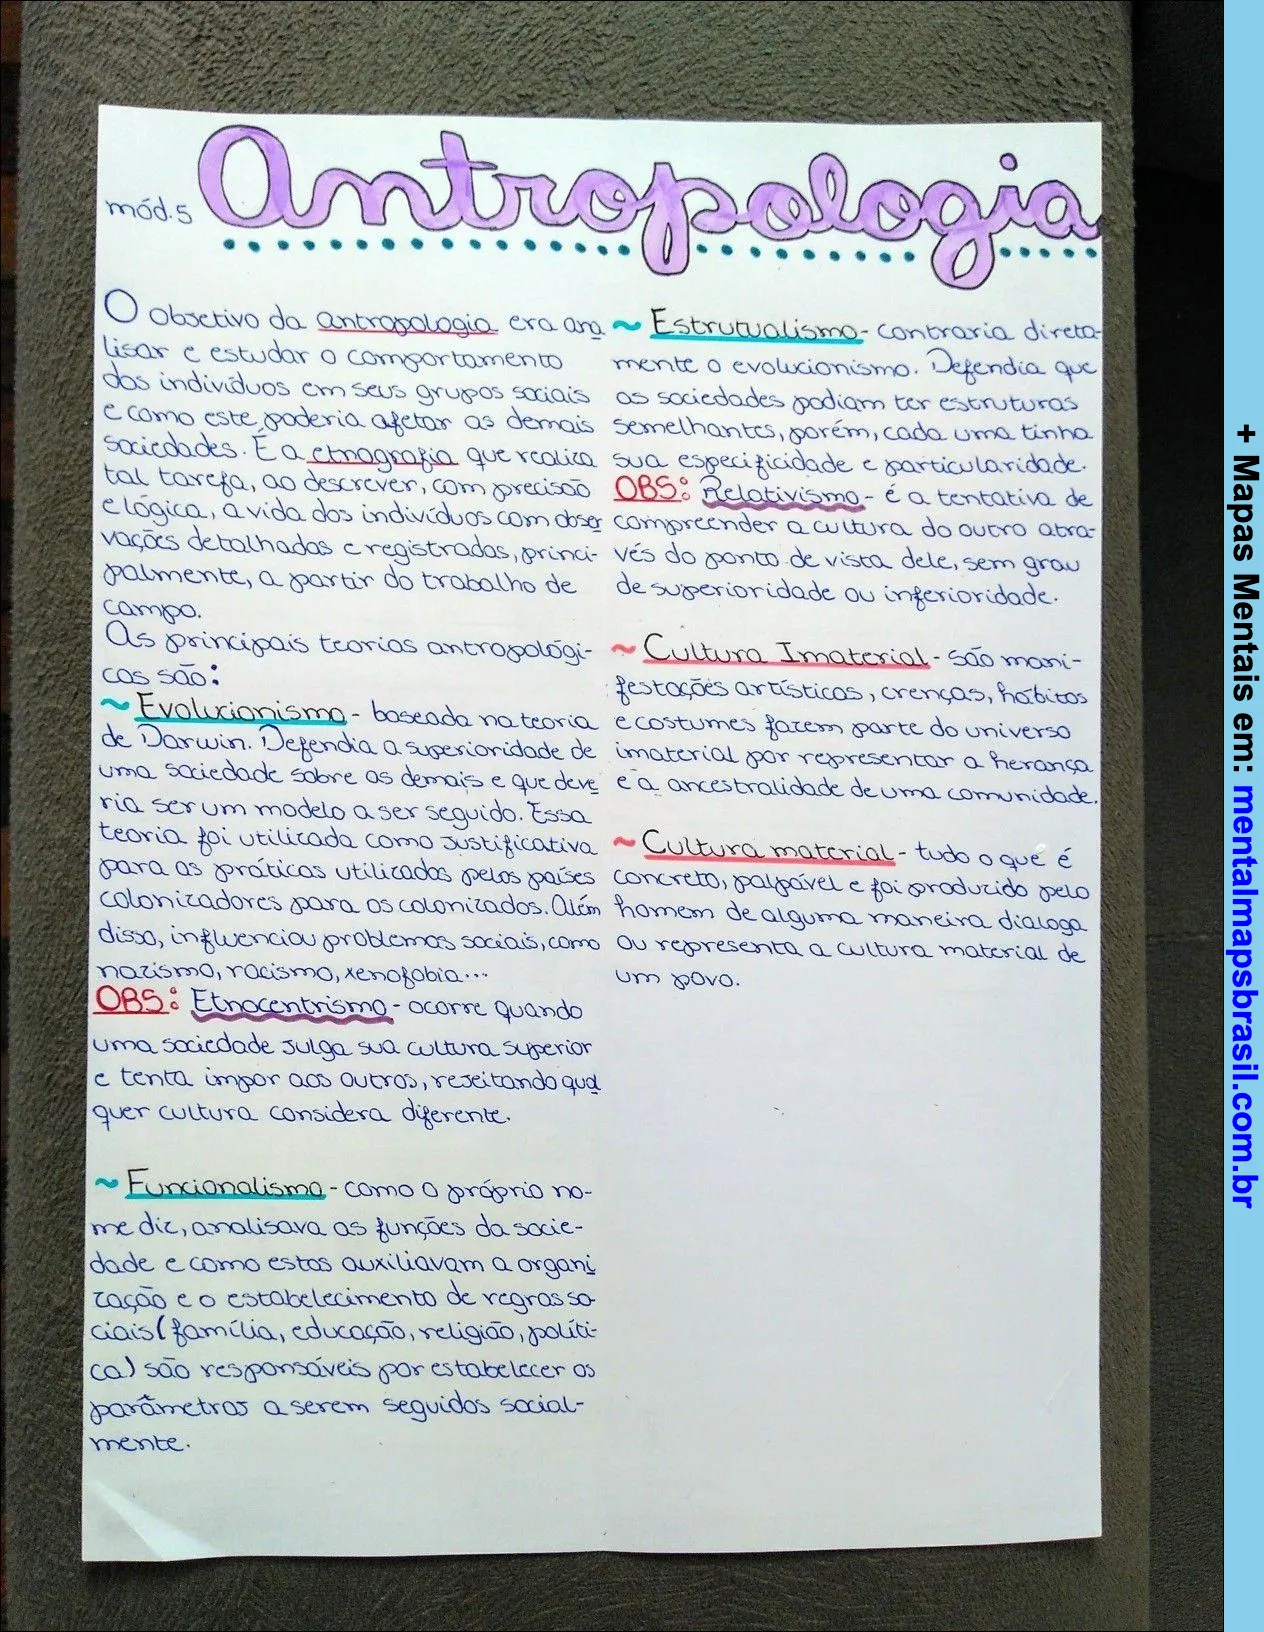 mód.5
Antropologia
O objetivo da antropologia era ana
lisar e estudar o comportamento
dos indivíduos em seus grupos sociais
e como este poderia afetar as demais
sociedades. É a etnografia que realiza
tal tarefa, ao descrever, com precisão
e lógica, a vida dos indivíduos com obser
vações detalhadas e registradas, princi-
palmente, a partir do trabalho de
campo.
As principais teorias antropológi-
cas são:
~ Evolucionismo - baseada na teoria
de Darwin. Defendia a superioridade de
uma sociedade sobre as demais e que deve
ria ser um modelo a ser seguido. Essa
teoria foi utilizada como justificativa
para as práticas utilizadas pelos países
colonizadores para os colonizados. Além
disso, influenciou problemas sociais, como
nazismo, racismo, xenofobia...
OBS: Etnocentrismo - ocorre quando
uma sociedade julga sua cultura superior
e tenta impor aos outros, rejeitando qual
quer cultura considera diferente.
~ Funcionalismo - como o próprio no-
me diz, analisava as funções da socie-
dade e como estas auxiliavam a organi
zação e o estabelecimento de regras so-
ciais (família, educação, religião, políti-
ca) são responsáveis por estabelecer os
parâmetros a serem seguidos social-
mente.
~ Estrutualismo - contraria direta-
mente o evolucionismo. Defendia que
as sociedades podiam ter estruturas
semelhantes, porém, cada uma tinha
sua especificidade e particularidade.
OBS: Relativismo - é a tentativa de
compreender a cultura do outro atra-
vés do ponto de vista dele, sem grau
de superioridade ou inferioridade.
~ Cultura Imaterial - são mani-
festações artísticas, crenças, hábitos
e costumes fazem parte do universo
imaterial por representar a herança
e a ancestralidade de uma comunidade.
~ Cultura material - tudo o que é
concreto, palpável e foi produzido pelo
homem de alguma maneira dialoga
ou representa a cultura material de
um povo.
+ Mapas Mentais em: mentalmapsbrasil.com.br